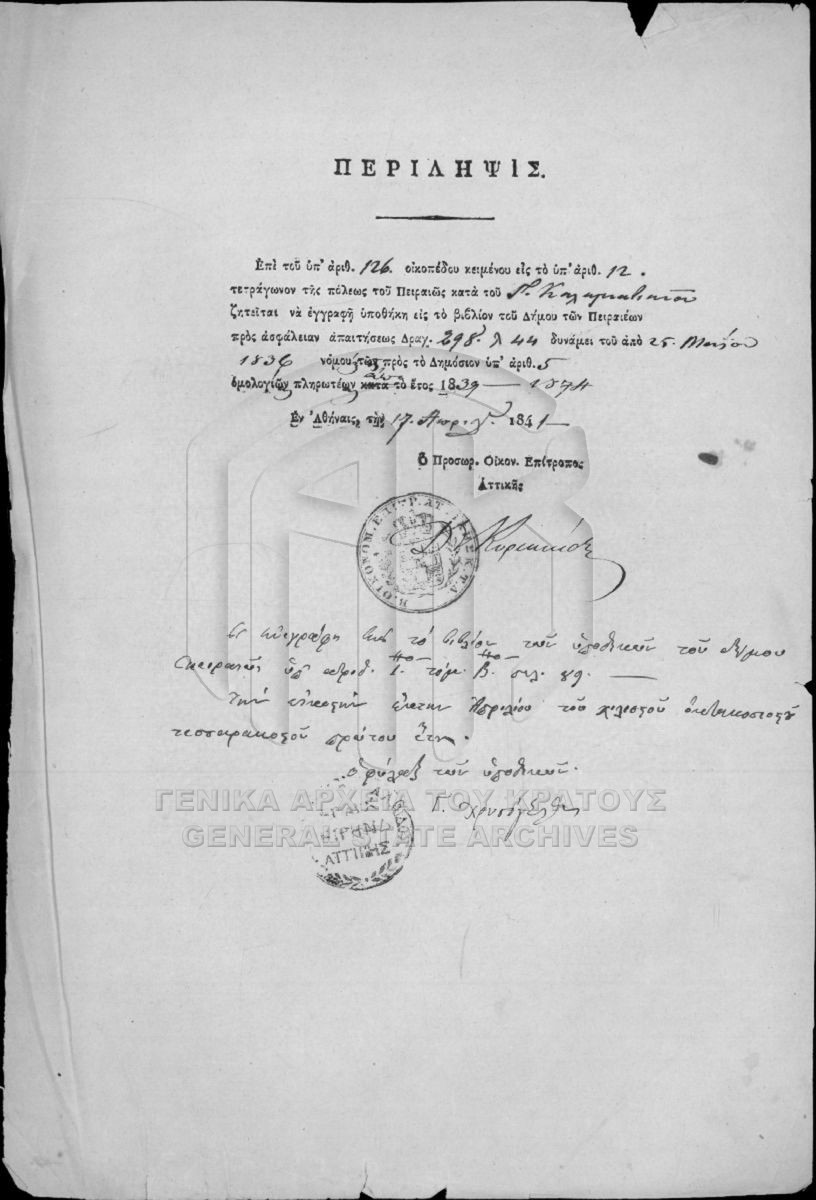 ΠΕΡΙΛΗΨΙΣ.
Ἐπὶ τοῦ ὑπ' ἀριθ. 126. οἰκοπέδου κειμένου εἰς τὸ ὑπ' ἀριθ. 12.
τετράγωνον τῆς πόλεως τοῦ Πειραιῶς κατὰ τοῦ Γ.
ζητεῖται νὰ ἐγγραφῇ ὑποθήκη εἰς τὸ βιβλίον τοῦ Δήμου τῶν Πειραιέων
πρὸς ἀσφάλειαν ἀπαιτήσεως Δραχ. 298. λ 44 δυνάμει τοῦ ἀπὸ 25 Μαΐου
1836 νόμου τῶν πρὸς τὸ Δημόσιον ὑπ' ἀριθ. 5
ὁμολογιῶν πληρωτέων κατὰ τὸ ἔτος 1839 — 1874
Ἐν Ἀθήναις, τὴν 17. Ἀπριλ. 1841 —
Ὁ Προσωρ. Οἰκον. Ἐπίτροπος
Ἀττικῆς
Β. ΟΙΚΟΝΟΜ. ΕΠΙΤΡ. ΑΤ
Ἐνεγράφη εἰς τὸ βιβλίον τῶν ὑποθηκῶν τοῦ δήμου
Πειραιῶς ὑπ' ἀριθ. τόμ. Β. σελ. 89. —
Τὴν εἰκοστὴν Ἀπριλίου τοῦ χιλιοστοῦ ὀκτακοσιοστοῦ
τεσσαρακοστοῦ πρώτου ἔτους.
Ὁ φύλαξ τῶν ὑποθηκῶν.
Γ.
ΕΙΡΗΝΟ
ΑΤΤΙΚΗΣ
ΓΕΝΙΚΑ ΑΡΧΕΙΑ ΤΟΥ ΚΡΑΤΟΥΣ
GENERAL STATE ARCHIVES